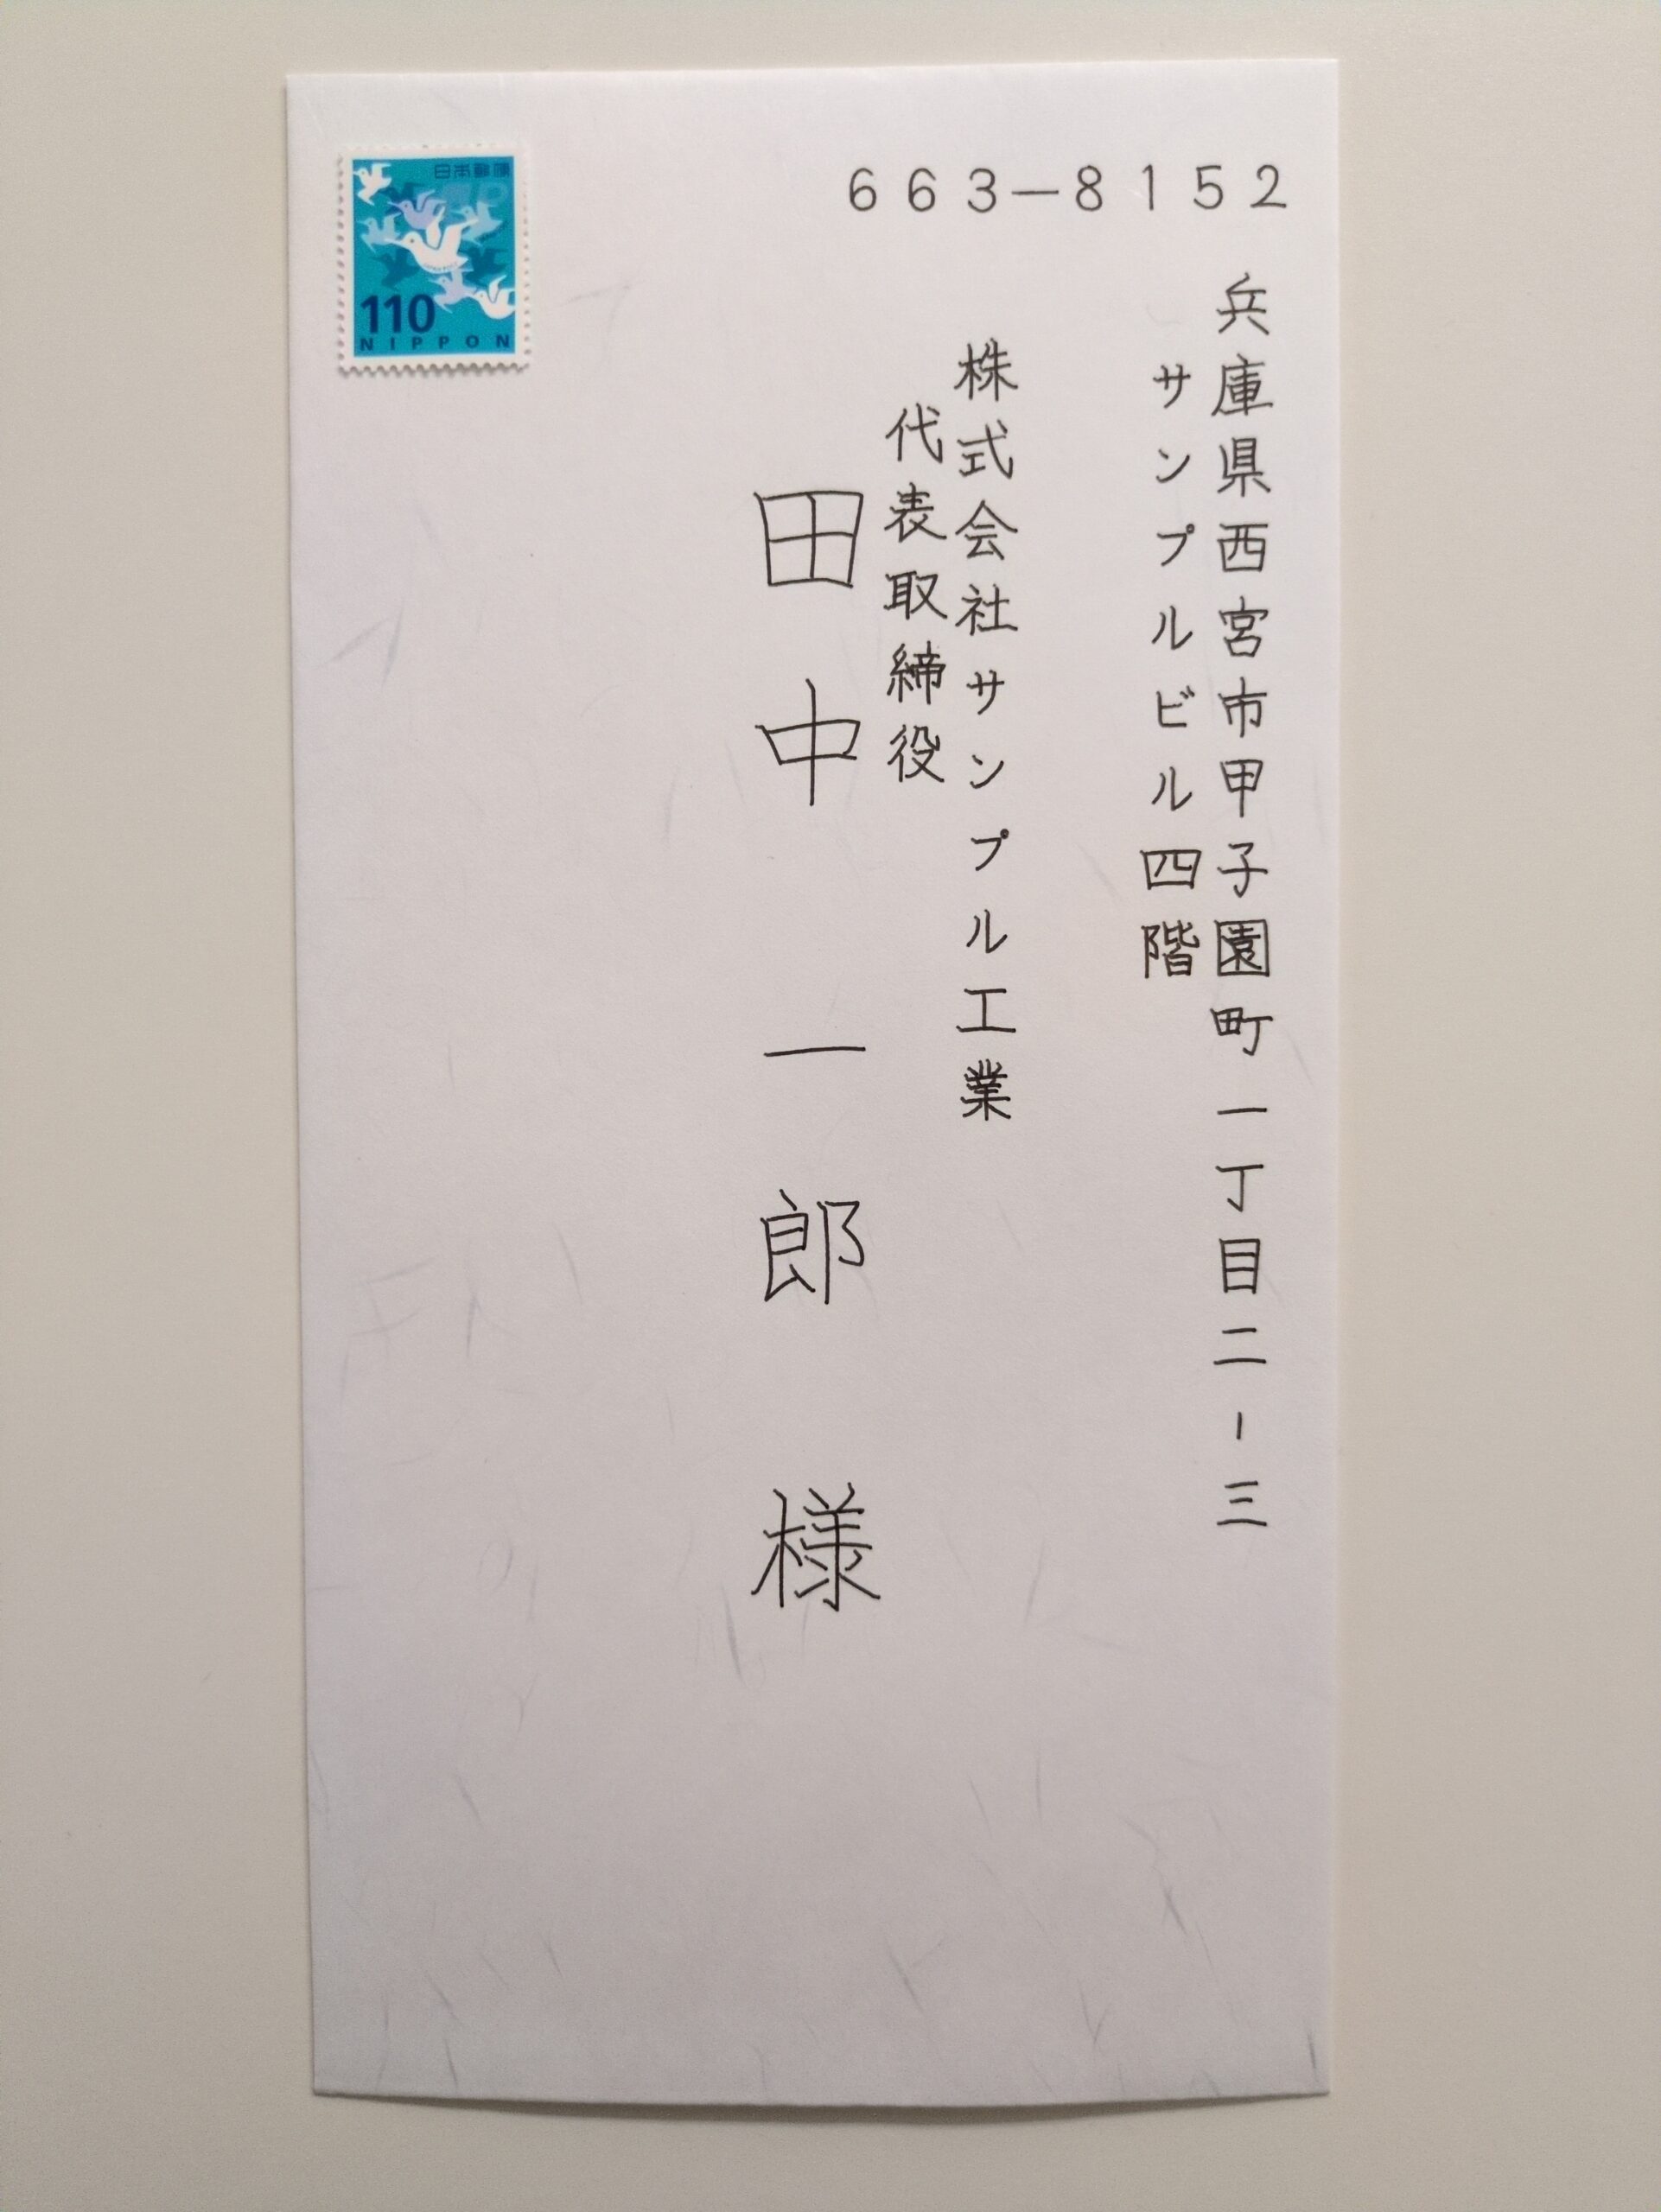 663-8152
兵庫県西宮市甲子園町一丁目二-三
サンプルビル四階
株式会社サンプル工業
代表取締役
田中一郎様
日本郵便
110
NIPPON